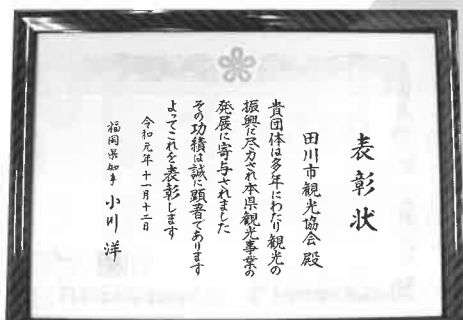 表彰状
田川市観光協会 殿
貴団体は多年にわたり観光の
振興に尽力され本県観光事業の
発展に寄与されました
その功績は誠に顕著であります
よってこれを表彰します
令和元年十一月十二日
福岡県知事 小川 洋